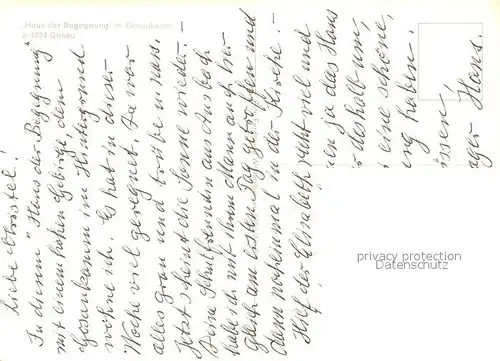 „Haus der Begegnung" m. Gosaukamm
A-4823 Gosau
Liebe Christel!
In diesem „Haus der Begegnung"
mit einem hohen Gebirge dem
Gosaukamm im Hintergrund
wohne ich. Es hat in dieser
Woche viel geregnet. Da war
alles grau und trübe u. nass.
Jetzt scheint die Sonne wieder. –
Deine Schulfreundin aus Ansbach
habe ich mit ihrem Mann auch hier
gleich am ersten Tag getroffen und
dann noch einmal in der Kirche. –
Hilf der Elisabeth recht viel und
en ja das Haus
deshalb um,
eine schöne,
ng haben.
issen,
ager Hans.
privacy protection
Datenschutz